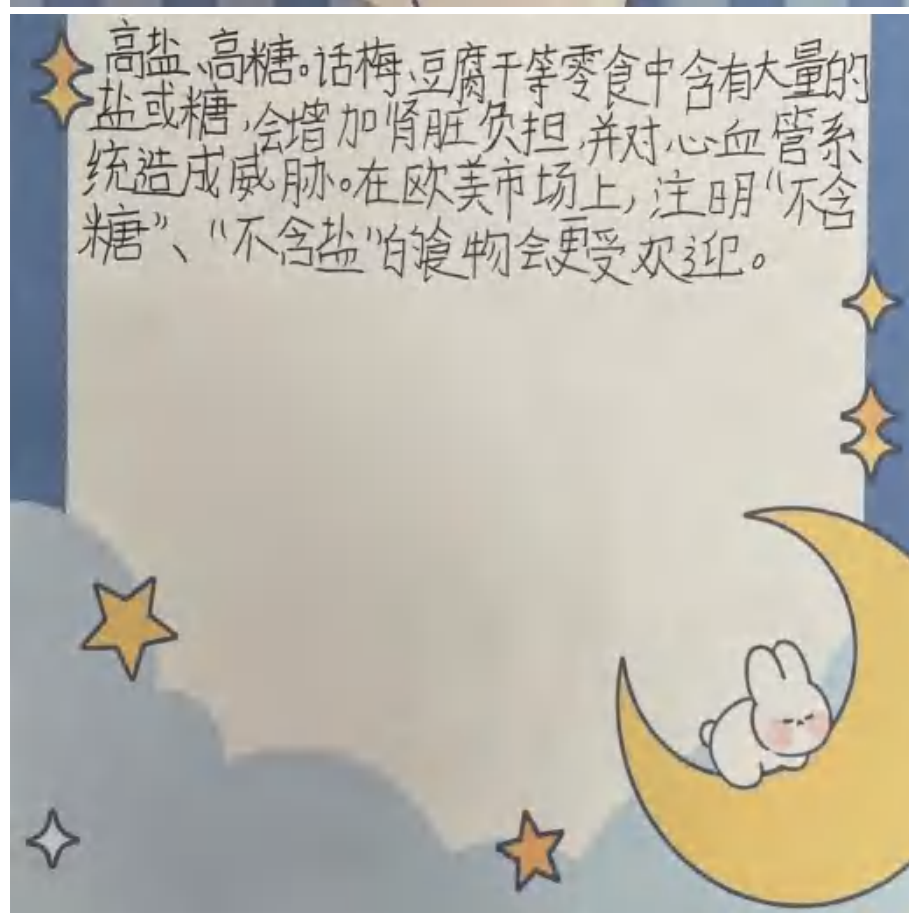 高盐、高糖。话梅、豆腐干等零食中含有大量的
盐或糖,会增加肾脏负担,并对心血管系
统造成威胁。在欧美市场上,注明“不含
糖”、“不含盐”的食物会更受欢迎。